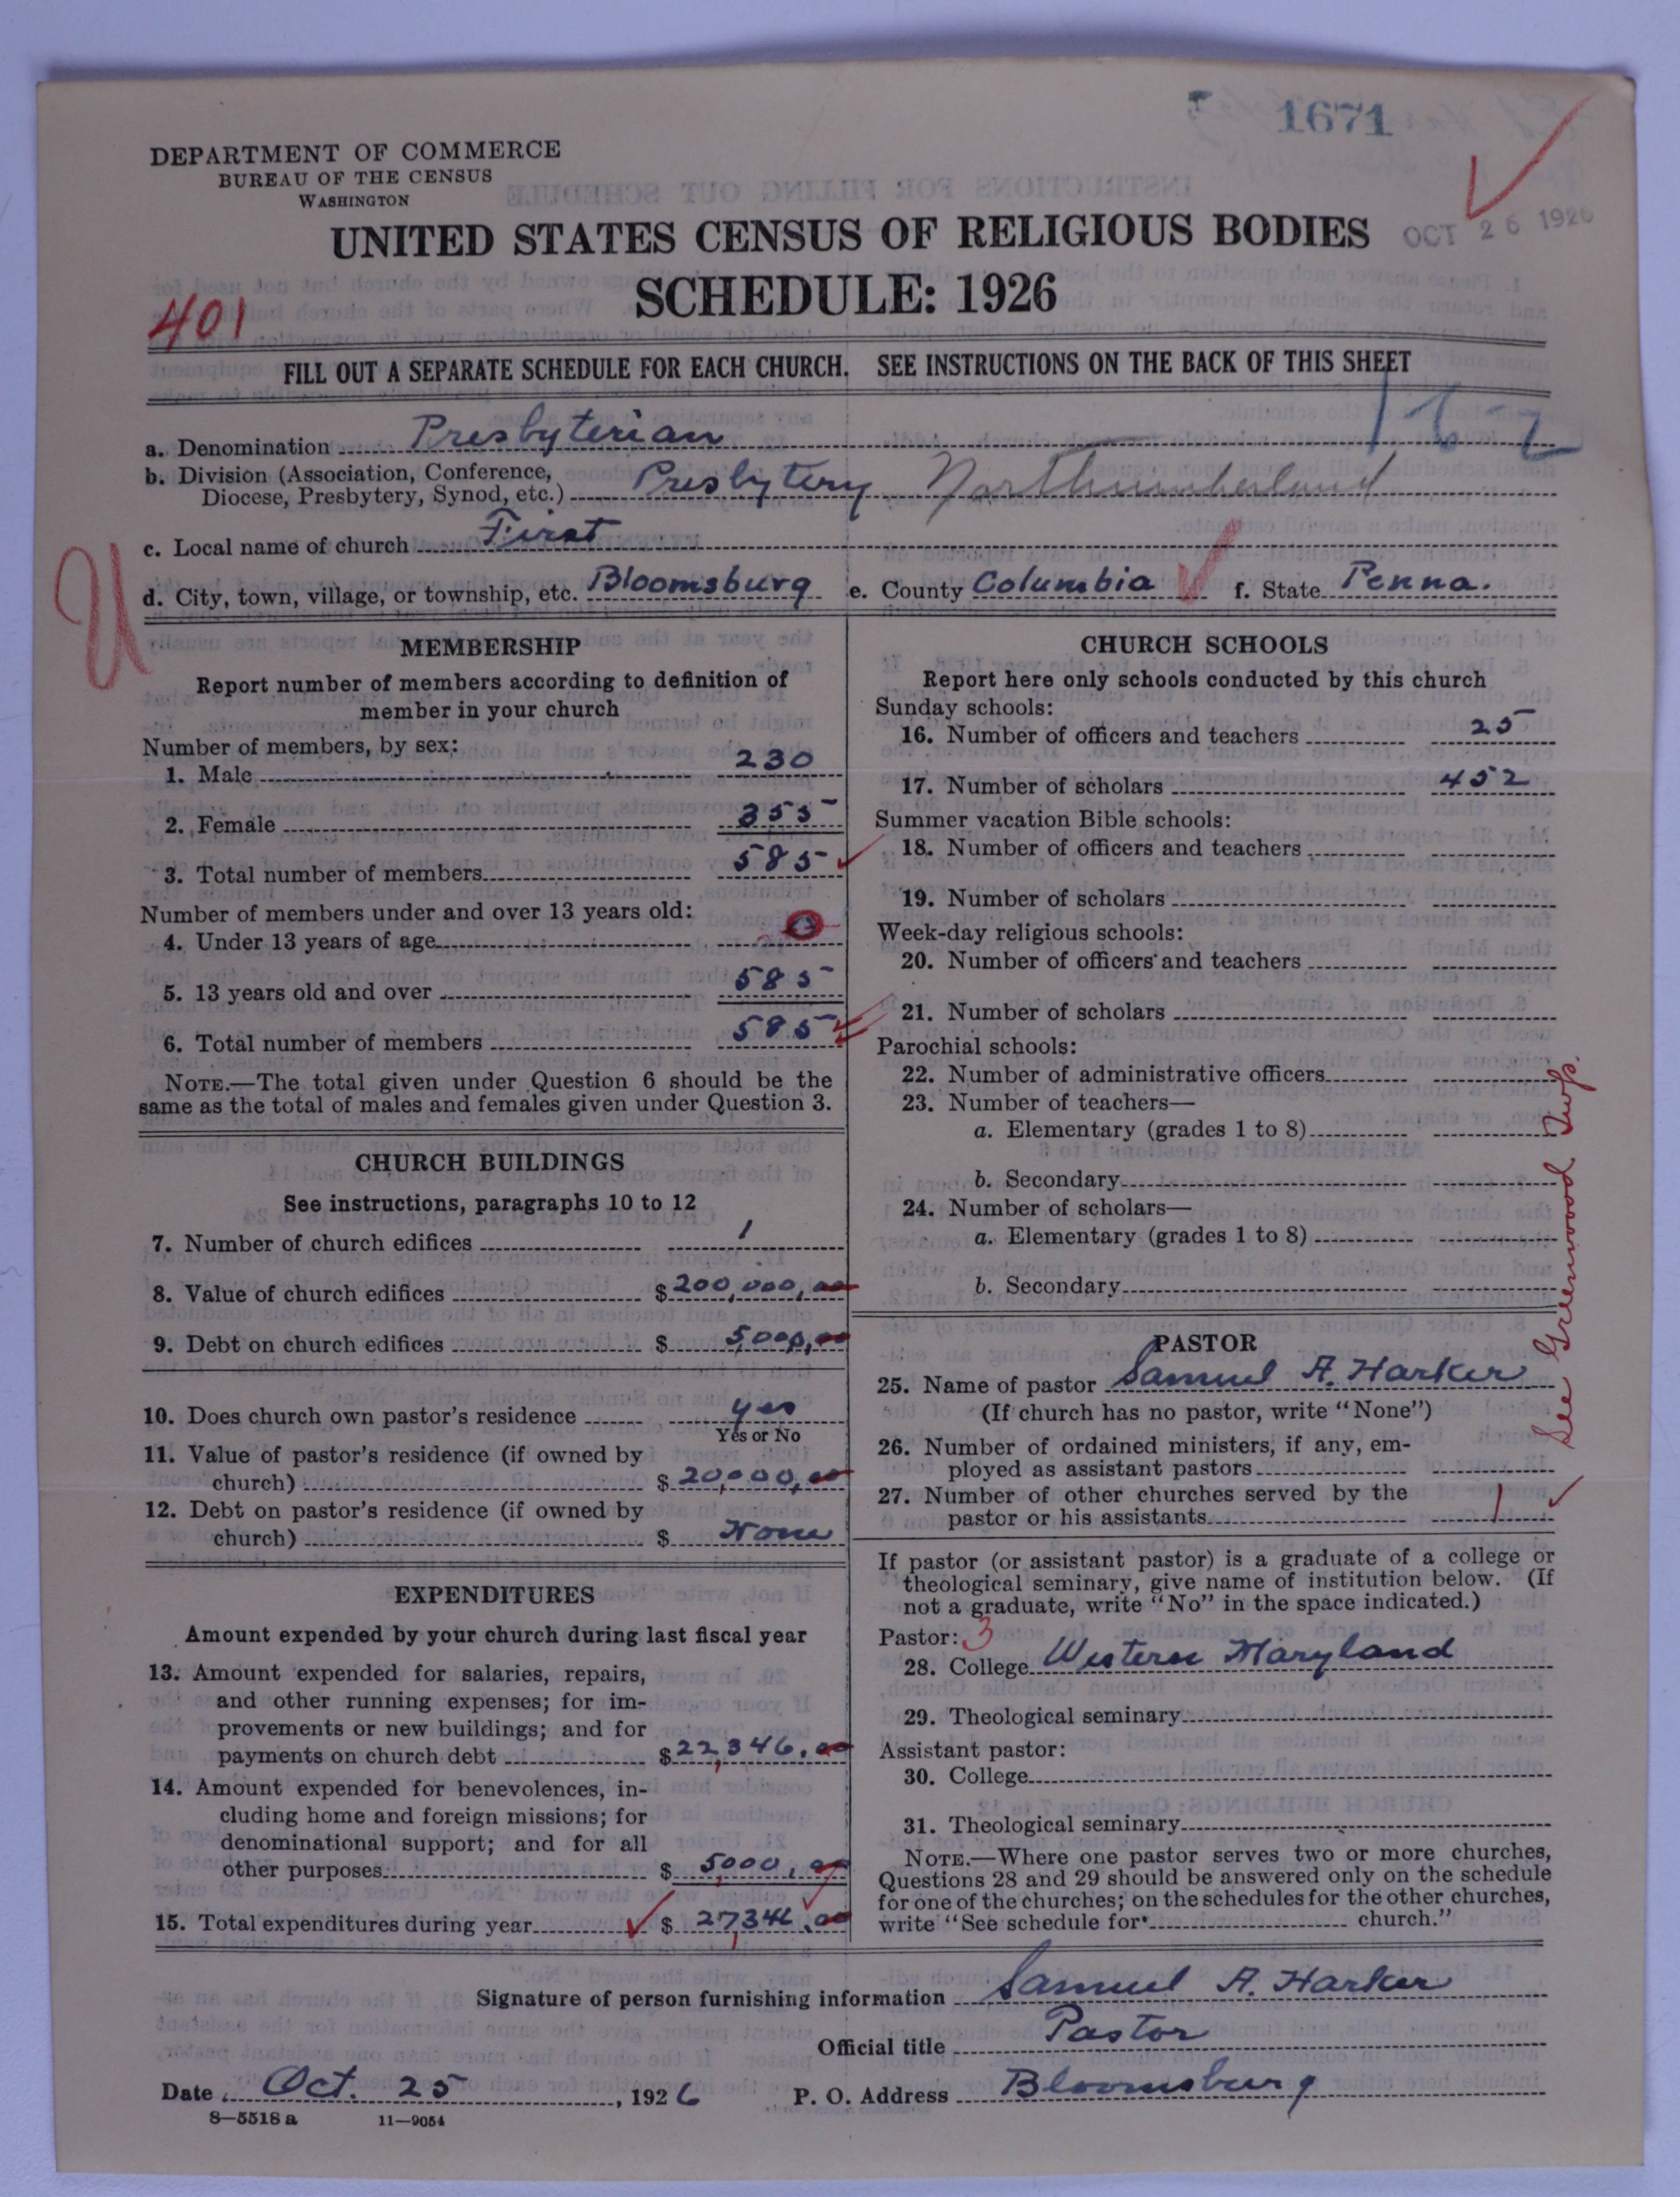 1671
DEPARTMENT OF COMMERCE
BUREAU OF THE CENSUS
WASHINGTON
UNITED STATES CENSUS OF RELIGIOUS BODIES
OCT 26 1926
SCHEDULE: 1926
401
FILL OUT A SEPARATE SCHEDULE FOR EACH CHURCH. SEE INSTRUCTIONS ON THE BACK OF THIS SHEET
a. Denomination Presbyterian 162
b. Division (Association, Conference,
Diocese, Presbytery, Synod, etc.) Presbytery Northumberland
c. Local name of church First
U
d. City, town, village, or township, etc. Bloomsburg e. County Columbia f. State Penna.
MEMBERSHIP
Report number of members according to definition of
member in your church
Number of members, by sex:
1. Male 230
2. Female 355
3. Total number of members 585
Number of members under and over 13 years old:
4. Under 13 years of age 0
5. 13 years old and over 585
6. Total number of members 585
NOTE.—The total given under Question 6 should be the
same as the total of males and females given under Question 3.
CHURCH BUILDINGS
See instructions, paragraphs 10 to 12
7. Number of church edifices 1
8. Value of church edifices $200,000,00
9. Debt on church edifices $ 5000,00
10. Does church own pastor's residence yes
Yes or No
11. Value of pastor's residence (if owned by
church) $ 20,000,00
12. Debt on pastor's residence (if owned by
church) $ None
EXPENDITURES
Amount expended by your church during last fiscal year
13. Amount expended for salaries, repairs,
and other running expenses; for im-
provements or new buildings; and for
payments on church debt $22,346.00
14. Amount expended for benevolences, in-
cluding home and foreign missions; for
denominational support; and for all
other purposes $ 5000,00
15. Total expenditures during year $ 27,346.00
CHURCH SCHOOLS
Report here only schools conducted by this church
Sunday schools:
16. Number of officers and teachers 25
17. Number of scholars 452
Summer vacation Bible schools:
18. Number of officers and teachers
19. Number of scholars
Week-day religious schools:
20. Number of officers and teachers
21. Number of scholars
Parochial schools:
22. Number of administrative officers
23. Number of teachers—
a. Elementary (grades 1 to 8)
b. Secondary
24. Number of scholars—
a. Elementary (grades 1 to 8)
b. Secondary
See Greenwood Twp.
PASTOR
25. Name of pastor Samuel A. Harker
(If church has no pastor, write "None")
26. Number of ordained ministers, if any, em-
ployed as assistant pastors
27. Number of other churches served by the
pastor or his assistants 1
If pastor (or assistant pastor) is a graduate of a college or
theological seminary, give name of institution below. (If
not a graduate, write "No" in the space indicated.)
Pastor: 3
28. College Western Maryland
29. Theological seminary
Assistant pastor:
30. College
31. Theological seminary
NOTE.—Where one pastor serves two or more churches,
Questions 28 and 29 should be answered only on the schedule
for one of the churches; on the schedules for the other churches,
write "See schedule for church."
Signature of person furnishing information Samuel A. Harker
Official title Pastor
Date Oct. 25, 1926 P. O. Address Bloomsburg
8—5518 a 11—9054